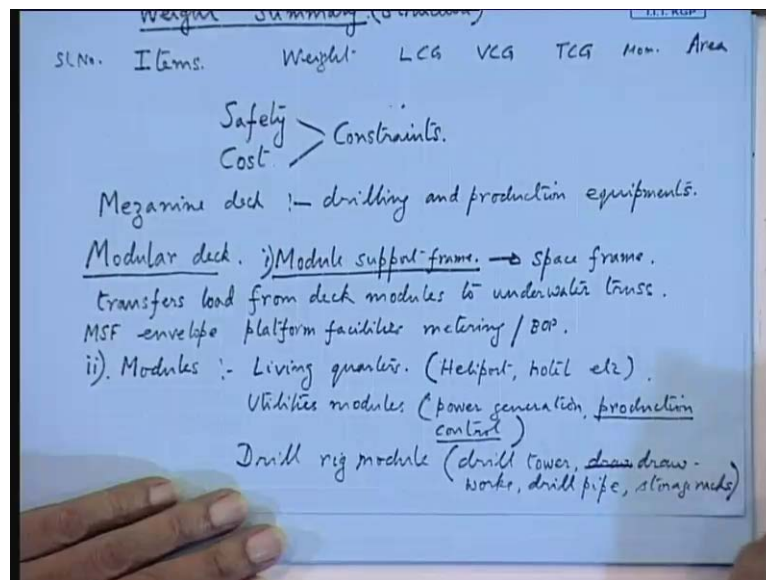 Weight Summary. (Structure)
I.I.T. KGP
Sl No. Items. Weight LCG VCG TCG Mom. Area
Safety
Cost > Constraints.
Mezanine deck :- drilling and production equipments.
Modular deck. i) Module support frame. → space frame.
transfers load from deck modules to underwater truss.
MSF envelope platform facilities metering / BOP.
ii). Modules :- Living quarters. (Heliport, hotel etz).
Utilities modules (power generation, production
control)
Drill rig module (drill tower, draw draw-
works, drill pipe, storage racks)